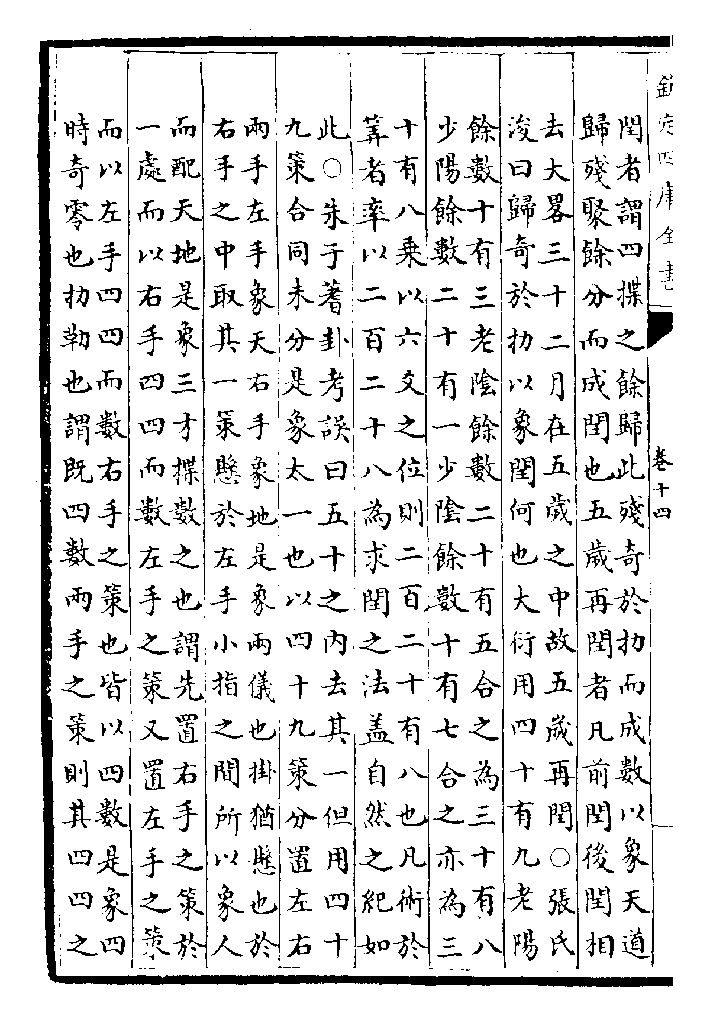 欽定四庫全書
卷十四
閏者謂四揲之餘歸此殘奇於扐而成數以象天道
歸殘聚餘分而成閏也五歲再閏者凡前閏後閏相
去大畧三十二月在五歲之中故五歲再閏○張氏
浚曰歸奇於扐以象閏何也大衍用四十有九老陽
餘數十有三老陰餘數二十有五合之為三十有八
少陽餘數二十有一少陰餘數十有七合之亦為三
十有八乗以六爻之位則二百二十有八也凡術於
筭者率以二百二十八為求閏之法盖自然之紀如
此○朱子蓍卦考誤曰五十之内去其一但用四十
九策合同未分是象太一也以四十九策分置左右
兩手左手象天右手象地是象兩儀也掛猶懸也於
右手之中取其一策懸於左手小指之間所以象人
而配天地是象三才揲數之也謂先置右手之策於
一處而以右手四四而數左手之策又置左手之策
而以左手四四而數右手之策也皆以四數是象四
時奇零也扐勒也謂既四數兩手之策則其四四之